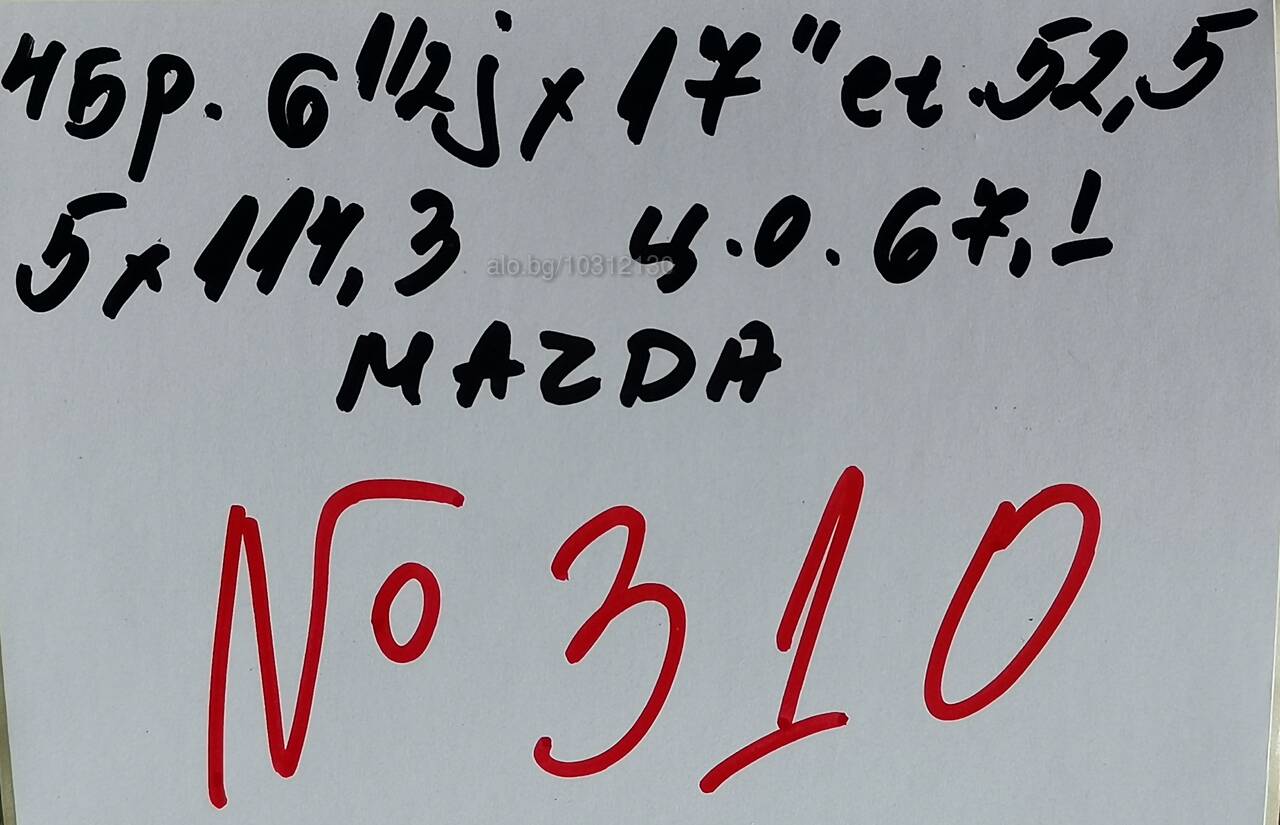 4бр. 6 1/2j x 17" et. 52,5
5 x 114,3 ц.о. 67,1
alo.bg/10312130
MAZDA
№ 310